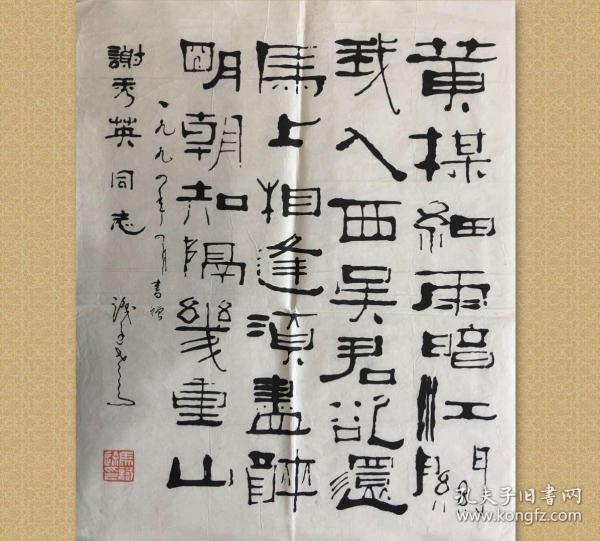 黄楳細雨暗江關
我入西吳君欲還
馬上相逢須盡醉
明朝知隔幾重山
一九九一年一月書贈
謝秀英同志
孔夫子旧书网
www.kongfz.com